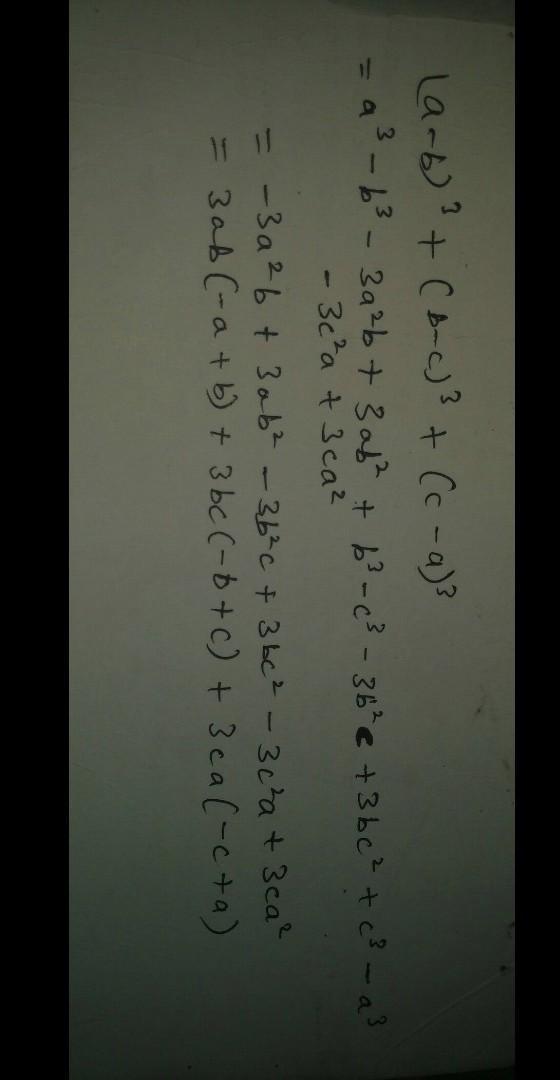 (a-b)³ + (b-c)³ + (c-a)³
= a³ - b³ - 3a²b + 3ab² + b³ - c³ - 3b²c + 3bc² + c³ - a³
- 3c²a + 3ca²
= -3a²b + 3ab² - 3b²c + 3bc² - 3c²a + 3ca²
= 3ab(-a+b) + 3bc(-b+c) + 3ca(-c+a)